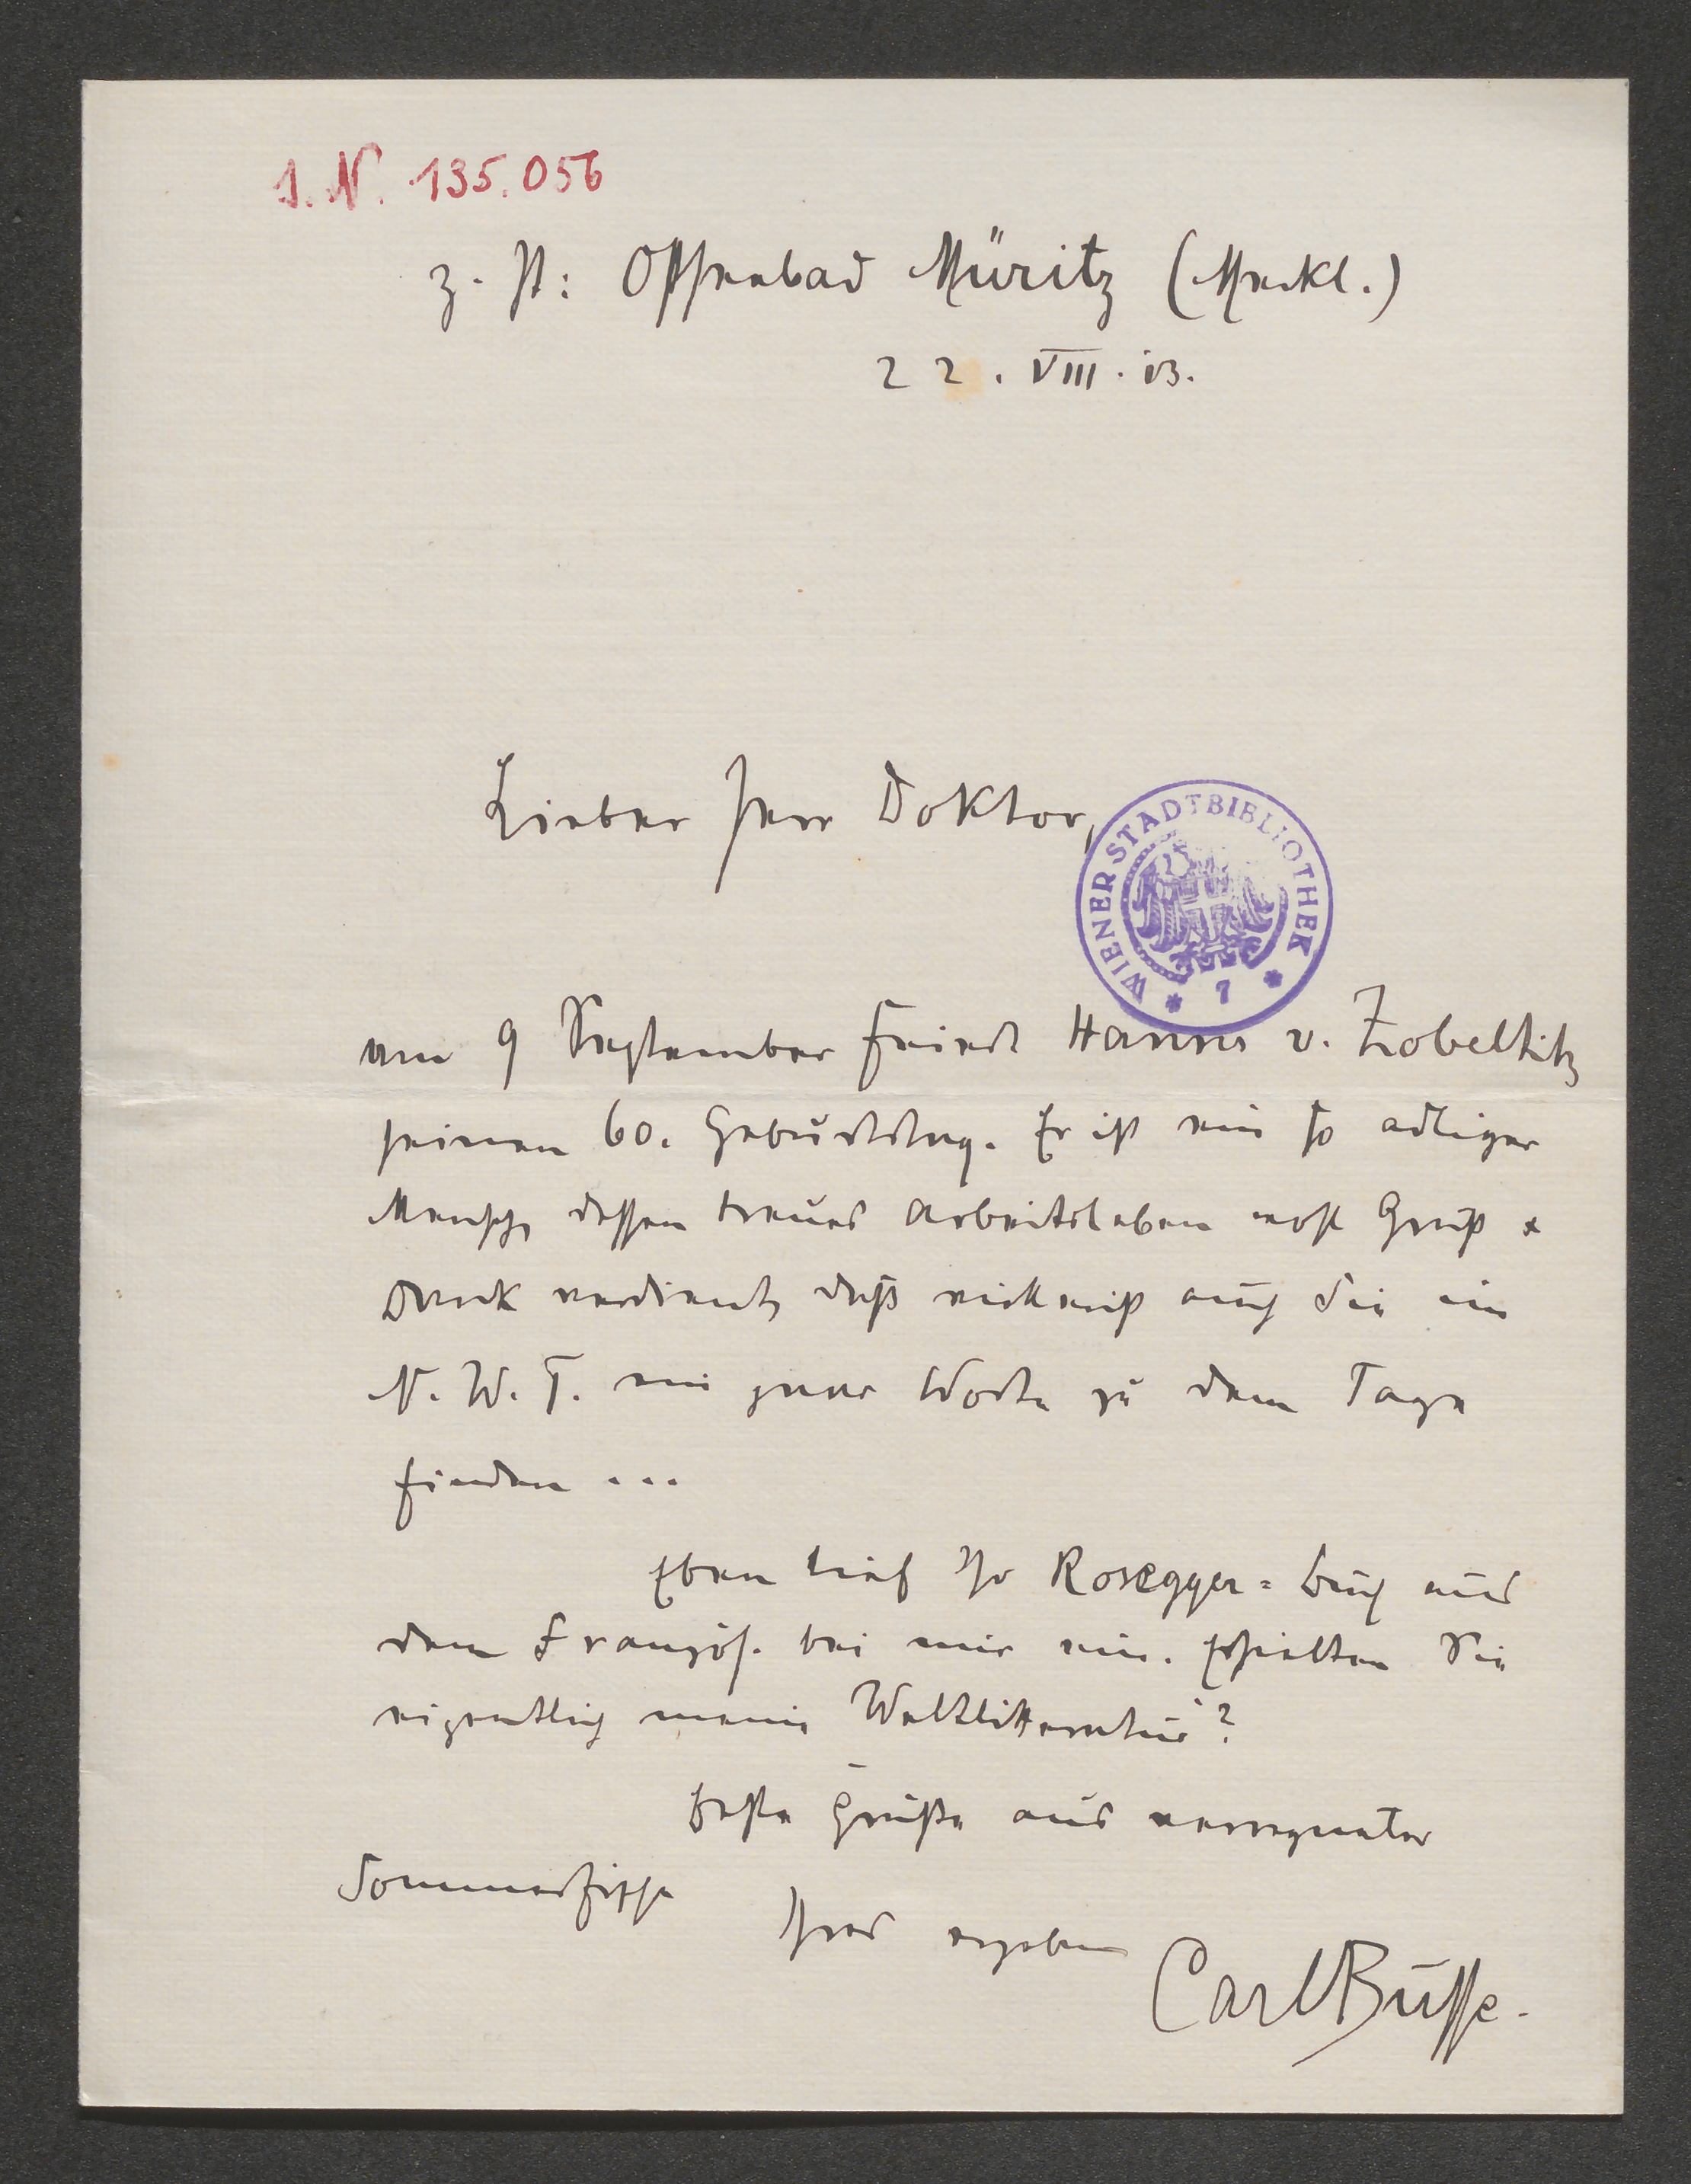 I. N. 135.056
z. Zt: Ostseebad Müritz (Meckl.)
22. VIII. 13.
Lieber Herr Doktor,
WIENER STADTBIBLIOTHEK
* 7 *
am 9 September feiert Hanns v. Zobeltitz
seinen 60. Geburtstag. Er ist ein so adliger
Mensch, dessen treues Arbeitsleben wohl Gruß &
Dank verdient, daß vielleicht auch Sie im
N. W. T. ein paar Worte zu dem Tage
finden ...
Eben lief Ihr Rosegger-Buch aus
dem Französ. bei mir ein. Erhielten Sie
eigentlich meine Weltlitteratur?
Beste Grüße aus verregneter
Sommerfrische
Ihres ergeben
Carl Busse.